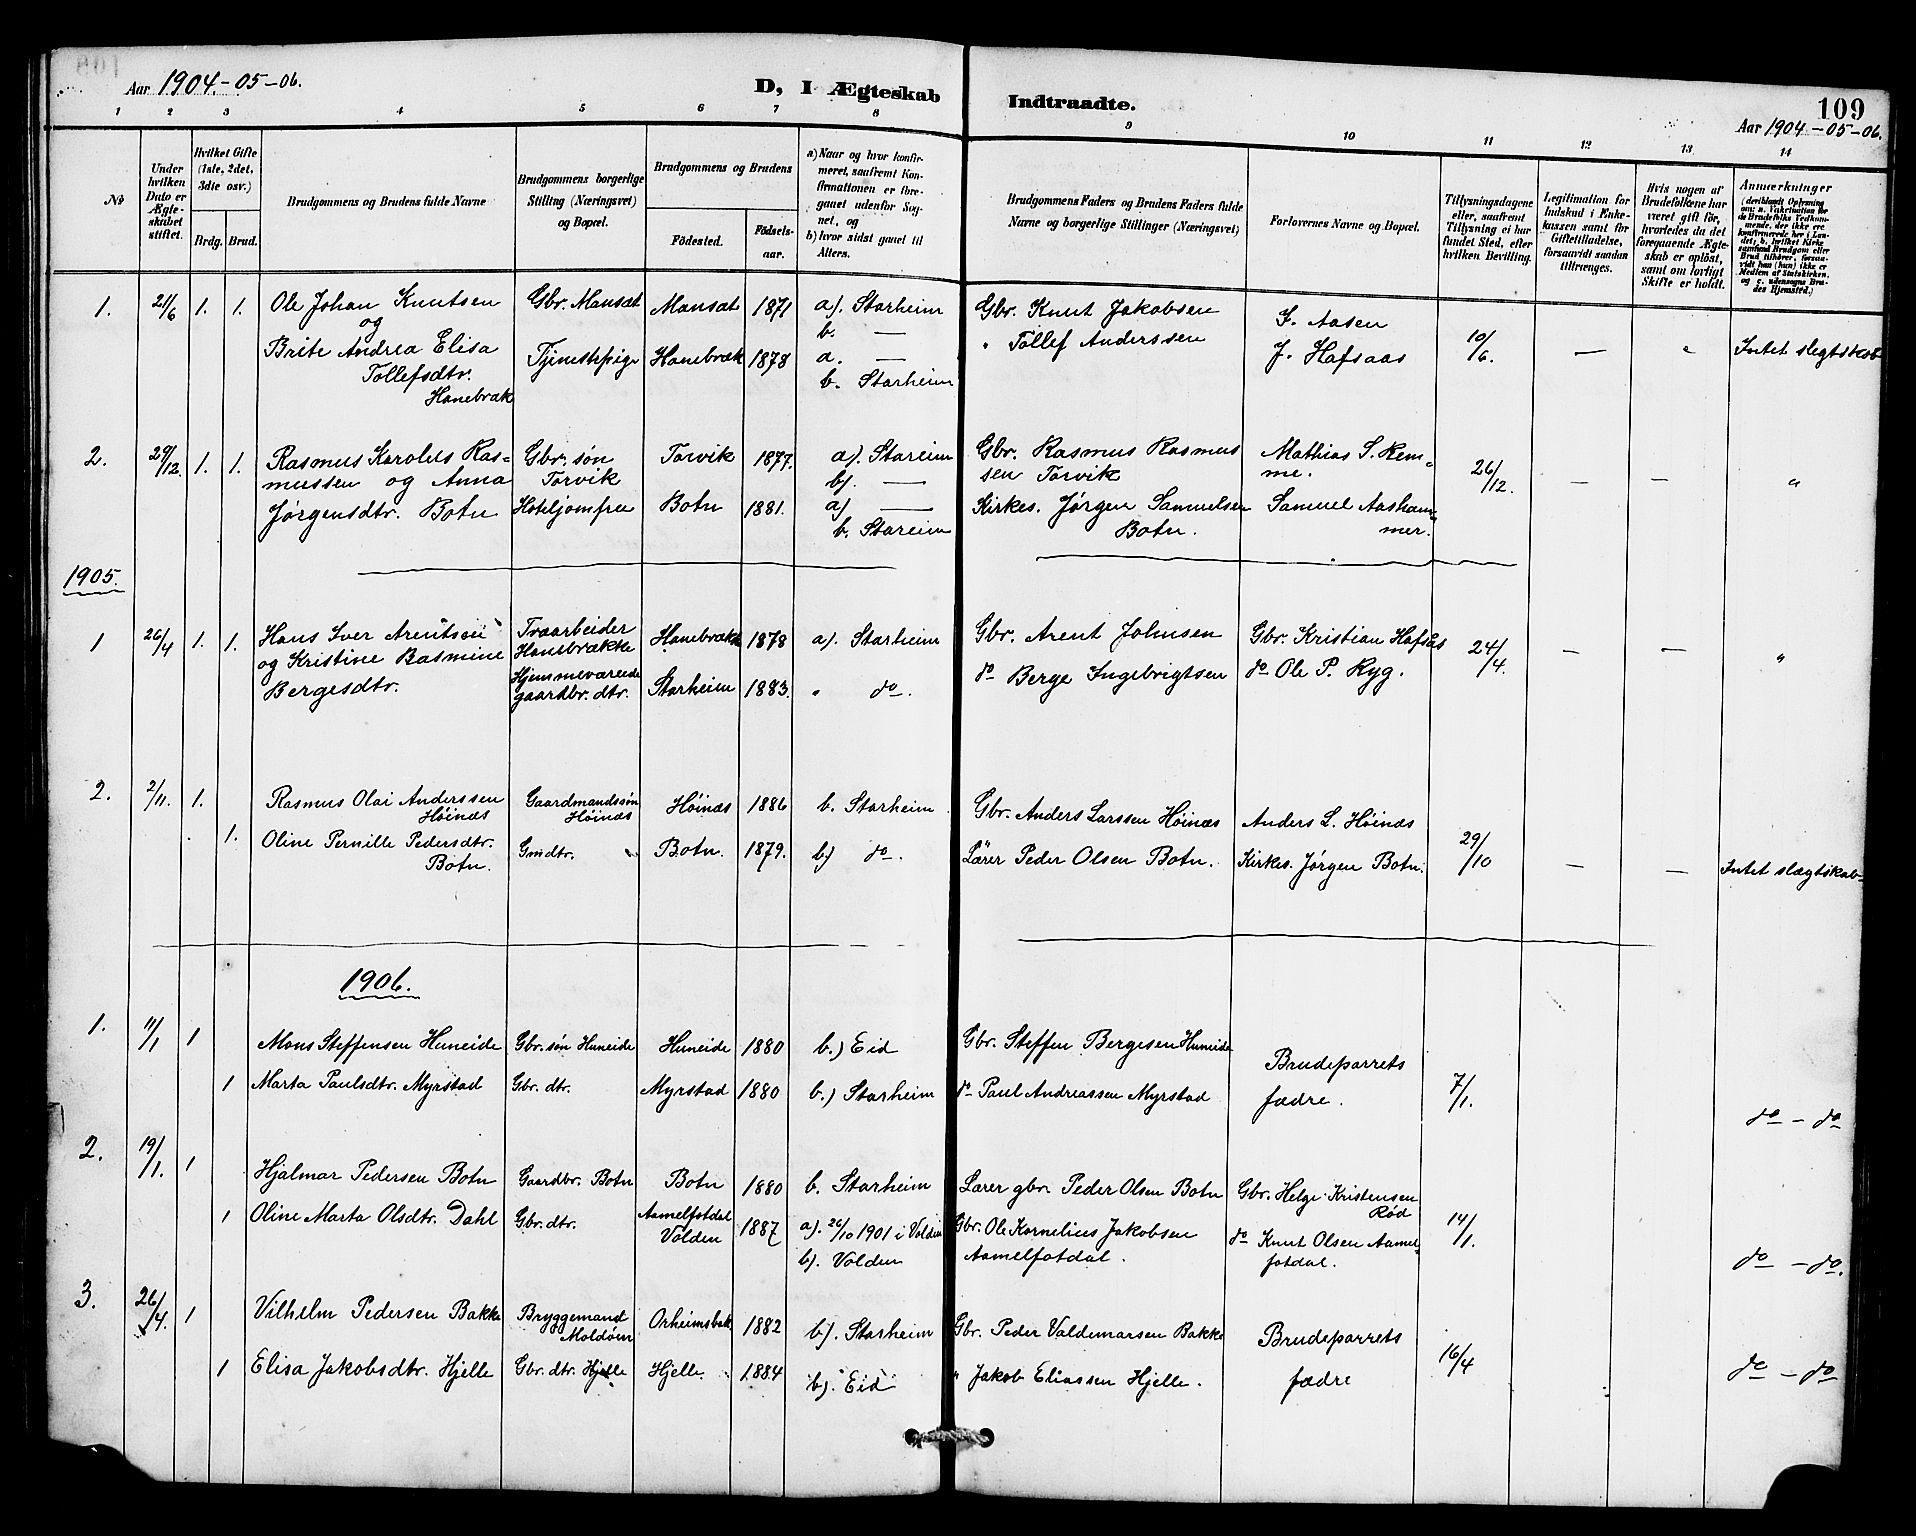 Aar 1904.-05-06.
D, I Ægteskab
Indtraadte.
109
Aar 1904-05-06.
1 2 3 4 5 6 7 8 9 10 11 12 13 14
No
Under hvilken Dato er Ægteskabet stiftet.
Hvilket Gifte (1ste, 2det, 3die osv.)
Brdg. Brud.
Brudgommens og Brudens fulde Navne
Brudgommens borgerlige Stilling (Næringsvei) og Bopæl.
Brudgommens og Brudens
Fødested.
Fødselsaar.
a) Naar og hvor konfirmeret, saafremt Konfirmationen er foregaaet udenfor Sognet, og
b) hvor sidst gaaet til Alters.
Brudgommens Faders og Brudens Faders fulde Navne og borgerlige Stillinger (Næringsvei)
Forlovernes Navne og Bopæl.
Tillysningsdagene eller, saafremt Tillysning ei har fundet Sted, efter hvilken Bevilling.
Legitimation for Indskud i Enkekassen samt for Giftetilladelse, forsaavidt saadan tiltrænges.
Hvis nogen af Brudefolkene har været gift før, hvorledes da det foregaaende Ægteskab er opløst, samt om lovligt Skifte er holdt.
Anmærkninger
1. 21/6 1. 1. Ole Johan Knutsen Gbr. Mansæt Mansæt 1871 a). Starheim Gbr. Knut Jakobsen J. Aasen
og b. —
Brite Andrea Elisa Tjenestepige Hanebræk 1878 a. — " Tollef Anderssen J. Hafsaas 10/6. — " Intet slegtskab
Tollefsdtr. b. Starheim
Hanebræk
2. 29/12. 1. 1. Rasmus Karolus Ras- Gbr. søn Torvik 1877. a). Stareim Gbr. Rasmus Rasmus Mathias S. Rem-
mussen og Anna Torvik b). — sen Torvik me. 26/12. — — "
Jørgensdtr. Botn Hoteljomfru Botn 1881. a) — Kirkes. Jørgen Samuelsen Samuel Aasham-
b. Stareim Botn. mer.
1905.
1 26/4 1. 1. Hans Iver Arentsen Træarbeider Hanebrække 1878 a). Starheim Gbr. Arent Johnsen Gbr. Kristian Hafsås 24/4. — — "
og Kristine Basmine Hanebrække
Bergesdtr. Hjemmeværende gaardbr. dtr. Starheim 1883. " do. do Berge Ingebrigtsen do Ole P. Ryg.
2. 2/11. 1. Rasmus Olai Anderssen Gaardmandssøn Høinæs 1886 b. Starheim Gbr. Anders Larssen Høinæs Anders L. Høinæs
Høinæs Høinæs
1. Oline Pernille Pedersdtr. Gmdtr. " Botn. 1879. b) do. Lärer Peder Olsen Botn. Kirkes. Jørgen Botn. 29/10 — — Intet slægtskab-
Botn.
1906.
1. 11/1 1 Mons Steffensen Huneide Gbr. søn Huneide Huneide 1880 b.) Eid Gbr. Steffen Bergesen Huneide Brudeparrets
1 Marta Paulsdtr. Myrstad Gbr. dtr. Myrstad 1880 b.) Starheim do Paul Andreassen Myrstad fædre. 7/1. do - do
2. 19/1. 1 Hjalmar Pedersen Botn Gaardbr. Botn Botn 1880 b. Starheim Lærer gbr. Peder Olsen Botn Gbr. Helge Kristensen
Rød
1 Oline Marta Olsdtr. Dahl Gbr. dtr. Aamelfotdal Volden 1887 a). 20/10 1901 i Volden Gbr. Ole Kornelius Jakobsen do Knut Olsen Aamel- 14/1.
b). Volden Aamelfotdal. fotdal. do - do.
3. 26/4. 1 Vilhelm Pedersen Bakke Bryggemand Orheimsbak 1882 b). Starheim Gbr. Peder Valdemarsen Bakke Brudeparrets
Moldøen
1 Elisa Jakobsdtr. Hjelle Gbr. dtr. Hjelle Hjelle. 1884 b). Eid " Jakob Eliassen Hjelle. fædre 16/4 do - do